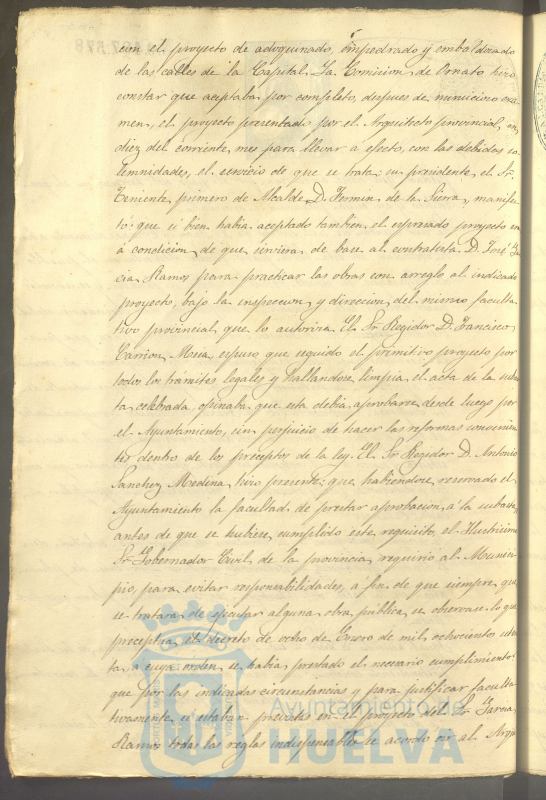 con el proyecto de adoquinado, empedrado y embaldosado
de las calles de la Capital. La Comision de Ornato hizo
constar que aceptaba por completo, despues de minucioso exa-
men, el proyecto presentado por el Arquitecto provincial, en
diez del corriente mes para llevar a efecto, con las debidas so-
lemnidades, el servicio de que se trata su presidente el Sr.
Teniente primero de Alcalde D. Fermin de la Sierra, manifes-
tó que si bien habia aceptado tambien el espresado proyecto era
á condicion de que sirviera de base al contratista D. José Gar-
cia Ramos para practicar las obras con arreglo al indicado
proyecto, bajo la inspeccion y direccion del mismo faculta-
tivo provincial que lo autoriza. El Sr. Regidor D. Francisco
Carrion Mena espuso que seguido el primitivo proyecto por
todos los trámites legales y hallandose limpia el acta de la subas-
ta celebrada, opinaba que esta debia aprobarse desde luego por
el Ayuntamiento, sin perjuicio de hacer las reformas convenien-
tes dentro de los preceptos de la ley. El Sr. Regidor D. Antonio
Sanchez Medina hizo presente: que habiendose reservado el
Ayuntamiento la facultad de prestar aprobacion á la subasta,
antes de que se hubiese cumplido este requisito, el Ilustrisimo
Sr. Gobernador Civil de la provincia requirió al Munici-
pio, para evitar responsabilidades, a fin de que siempre que
se tratara de ejecutar alguna obra pública, se observase lo que
preceptua el decreto de ocho de Enero de mil ochocientos seten-
ta a cuya orden se habia prestado el necesario cumplimiento
que por las indicadas circunstancias y para justificar faculta-
tivamente si estaban previstas en el proyecto del Sr. Garcia
Ramos todas las reglas indispensables se acordó oir al Arqui-
Ayuntamiento de
HUELVA